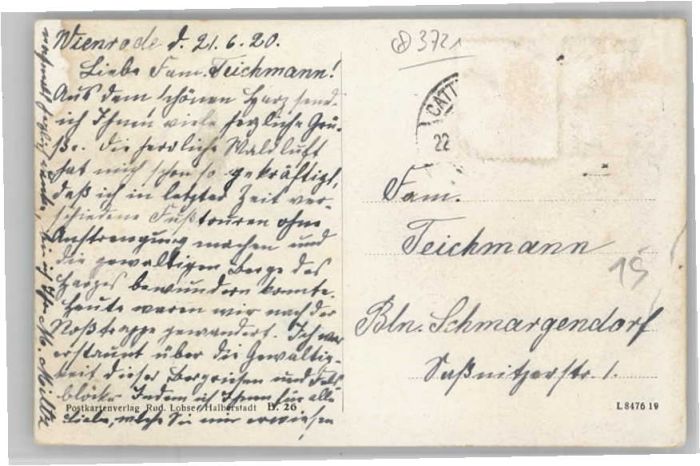 Wienrode d. 21.6.20.
Liebe Fam. Teichmann!
Aus dem schönen Harz send
ich Ihnen viele herzliche Grü-
ße. Die herrliche Waldluft
hat mich schon so gekräftigt,
daß ich in letzter Zeit ver-
schiedene Fußtouren ohne
Anstrengung machen und
die gewaltigen Berge des
Harzes bewundern konnte.
Heute waren wir nach der
Roßtrappe gewandert. Ich war
erstaunt über die Gewaltig-
keit dieser Bergriesen und Fels
blöcke. Indem ich Ihnen für alle
Liebe, welche Sie mir erwiesen
nochmals herzlich danke, bin ich Ihr
Postkartenverlag Rud. Lohse, Halberstadt B. 26
3721
CATT
22
Fam.
Teichmann
15
Bln. Schmargendorf
Saßnitzerstr. 1.
L 8476 19